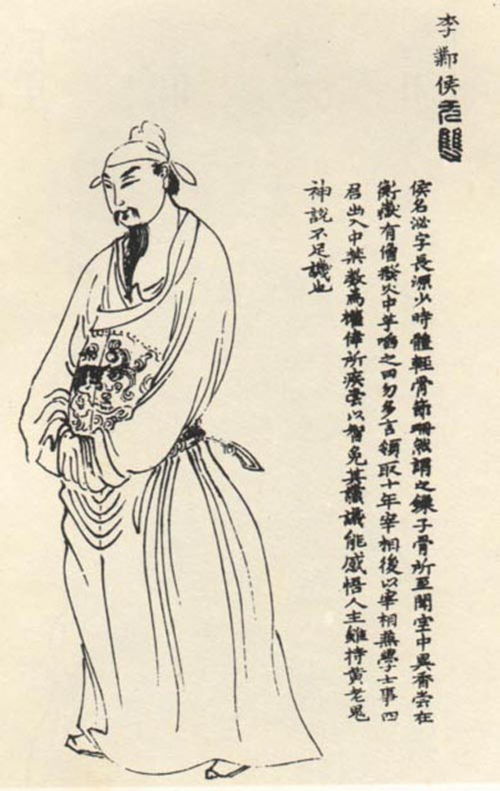 李鄴侯无雙
侯名泌字長源少時體輕骨節珊然謂之鏁子骨所至聞室中異香嘗在
衡嶽有僧撥火中芋啗之曰勿多言領取十年宰相後以宰相兼學士事四
君出入中禁數為權倖所疾嘗以智免其讜議能感悟人主雖持黃老鬼
神說不足譏也